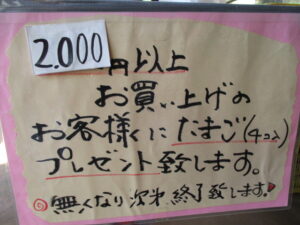 2.000
円以上
お買い上げの
お客様にたまご(4コ入)
プレゼント致します。
◎無くなり次第終了致します!